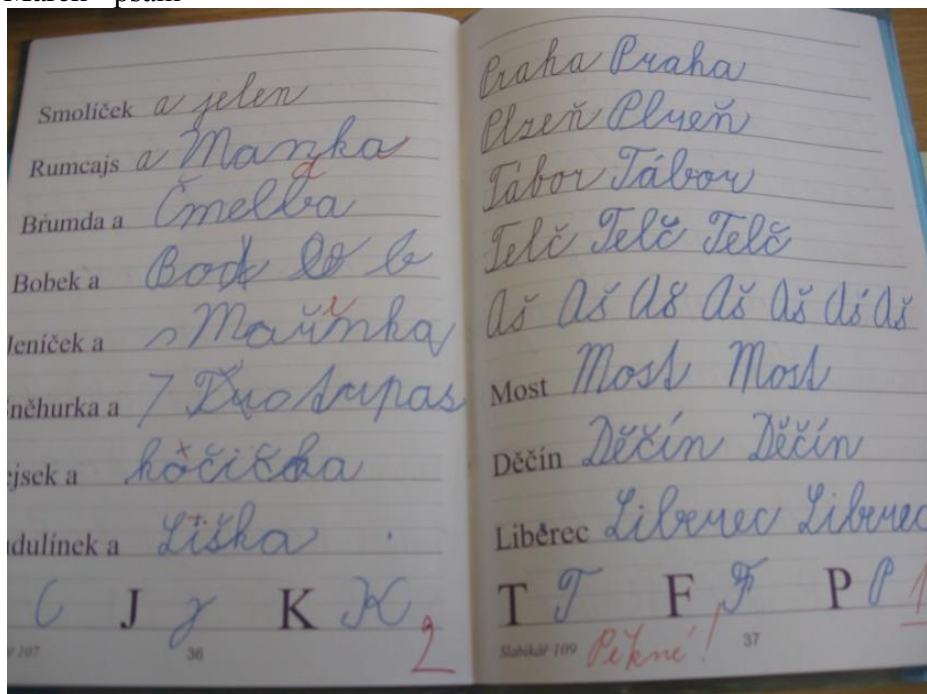 Smolíček a jelen
Rumcajs a Manka
Brumda a Čmelda
Bobek a
Jeníček a Mařenka
něhurka a 7
ejsek a kočička
dulínek a Liška
C J J K K
2
107
36
Praha Praha
Plzeň Plzeň
Tábor Tábor
Telč Telč Telč
Aš Aš Aš Aš Aš Aš Aš
Most Most Most
Děčín Děčín Děčín
Liberec Liberec Liberec
T T F F P P 1
Slabikář 109 Pěkné! 37